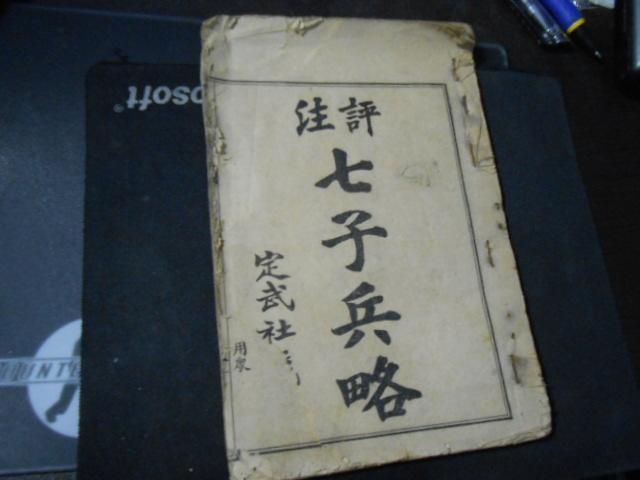 評注
七子兵略
定武社
用衆
osoft